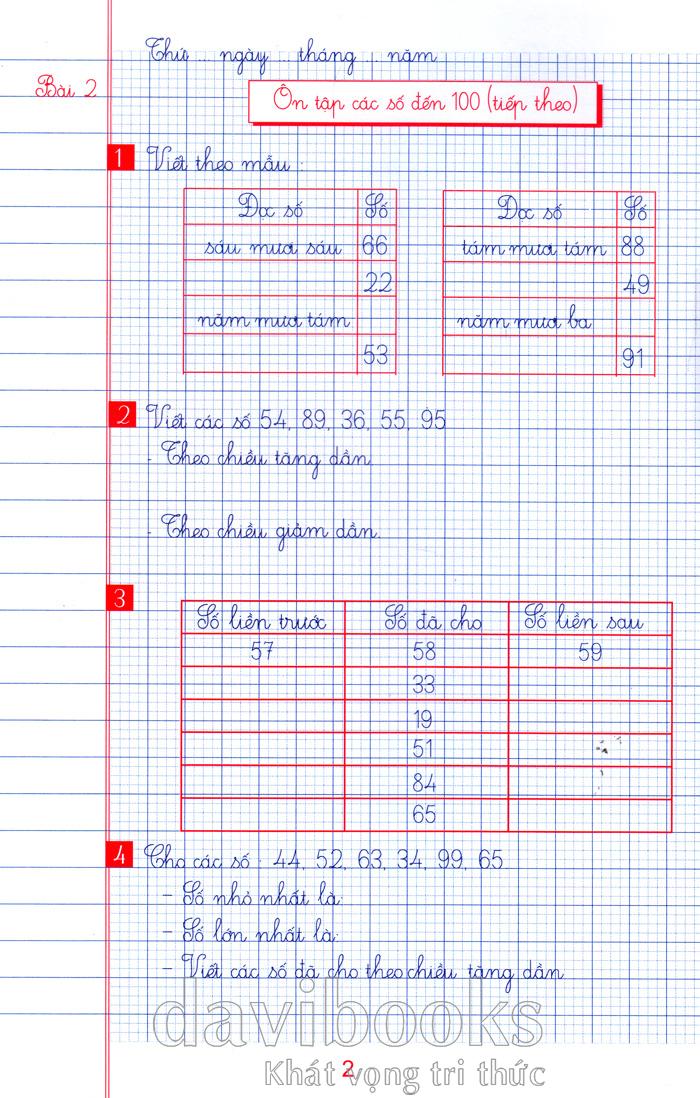 Thứ ... ngày ... tháng ... năm
Bài 2
Ôn tập các số đến 100 (tiếp theo)
1 Viết theo mẫu :
Đọc số Số
sáu mươi sáu 66
22
năm mươi tám
53
Đọc số Số
tám mươi tám 88
49
năm mươi ba
91
2 Viết các số 54, 89, 36, 55, 95
- Theo chiều tăng dần.
- Theo chiều giảm dần.
3
Số liền trước Số đã cho Số liền sau
57 58 59
33
19
51
84
65
4 Cho các số : 44, 52, 63, 34, 99, 65
- Số nhỏ nhất là:
- Số lớn nhất là:
- Viết các số đã cho theo chiều tăng dần
davibooks
Khát vọng tri thức
2